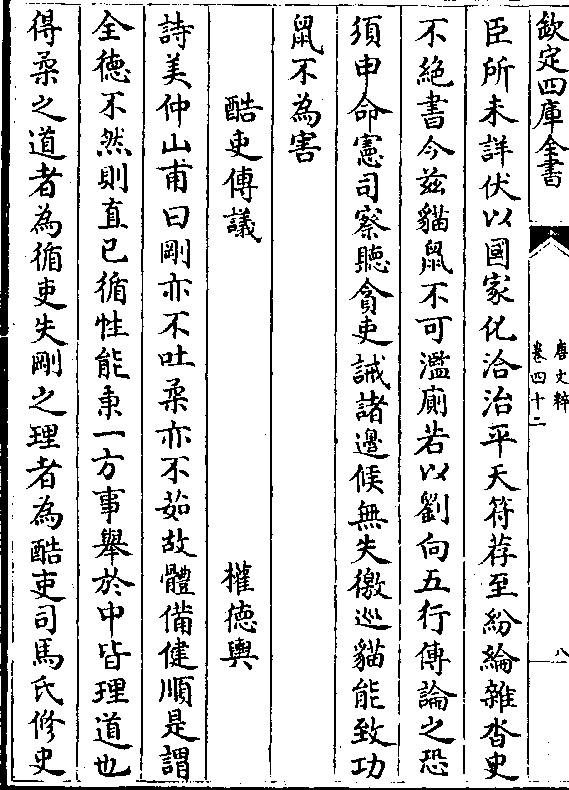 欽定四庫全書
唐文粹
卷四十二
八
臣所未詳伏以國家化洽治平天符荐至紛綸雜沓史
不絕書今茲貓鼠不可濫廁若以劉向五行傳論之恐
須申命憲司察聽貪吏誡諸邊候無失徼巡貓能致功
鼠不為害
酷吏傳議 權德輿
詩美仲山甫曰剛亦不吐柔亦不茹故體備健順是謂
全德不然則直已循性能秉一方事舉於中皆理道也
得柔之道者為循吏失剛之理者為酷吏司馬氏修史